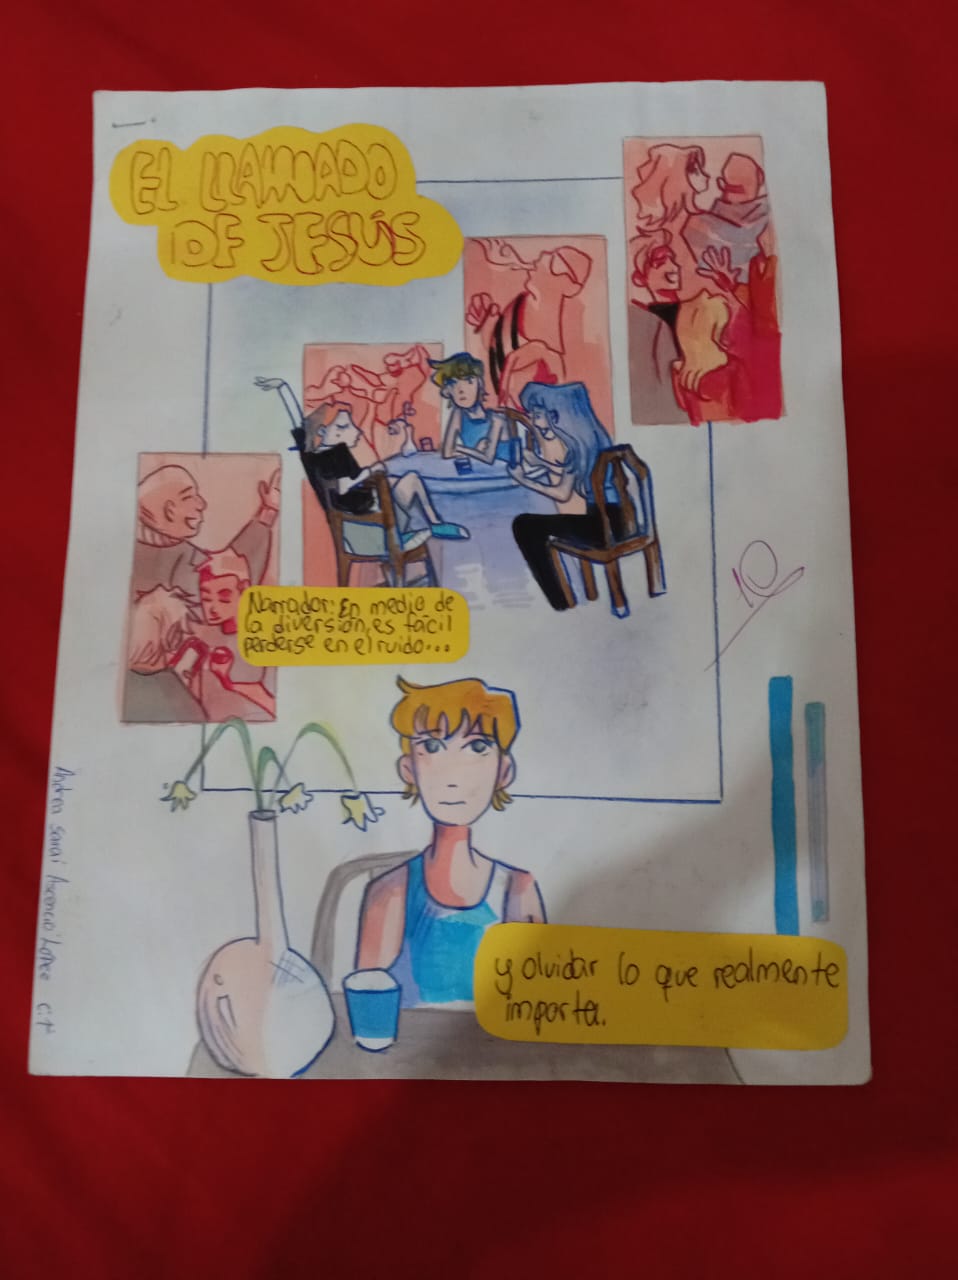 EL LLAMADO
DE JESÚS
Narrador: En medio de
la diversión, es fácil
perderse en el ruido...
y olvidar lo que realmente
importa.
10
Andrea Sarai Ascencio López